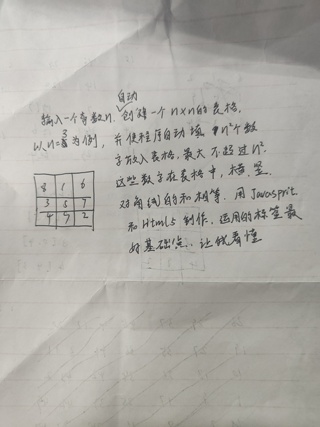 自动
输入一个奇数n.创建一个n×n的表格,
以n=3为例,并使程序自动填n²个数
字放入表格,最大不超过n².
这些数字在表格中,横、竖、
对角线的和相等.用Javasprit
和Html5制作,运用的标签最
好基础点,让我看懂
8 1 6
3 5 7
4 9 2